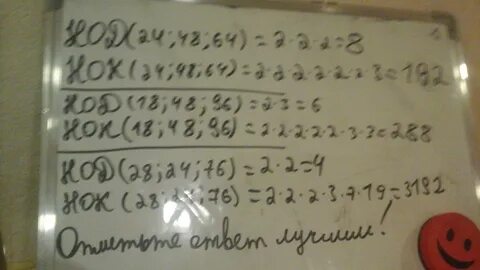 НОД(24;48;64)=2·2·2=8
НОК(24;48;64)=2·2·2·2·2·2·3=192
НОД(18;48;96)=2·3=6
НОК(18;48;96)=2·2·2·2·2·3·3=288
НОД(28;24;76)=2·2=4
НОК(28;24;76)=2·2·2·3·7·19=3192
Отметьте ответ лучшим!